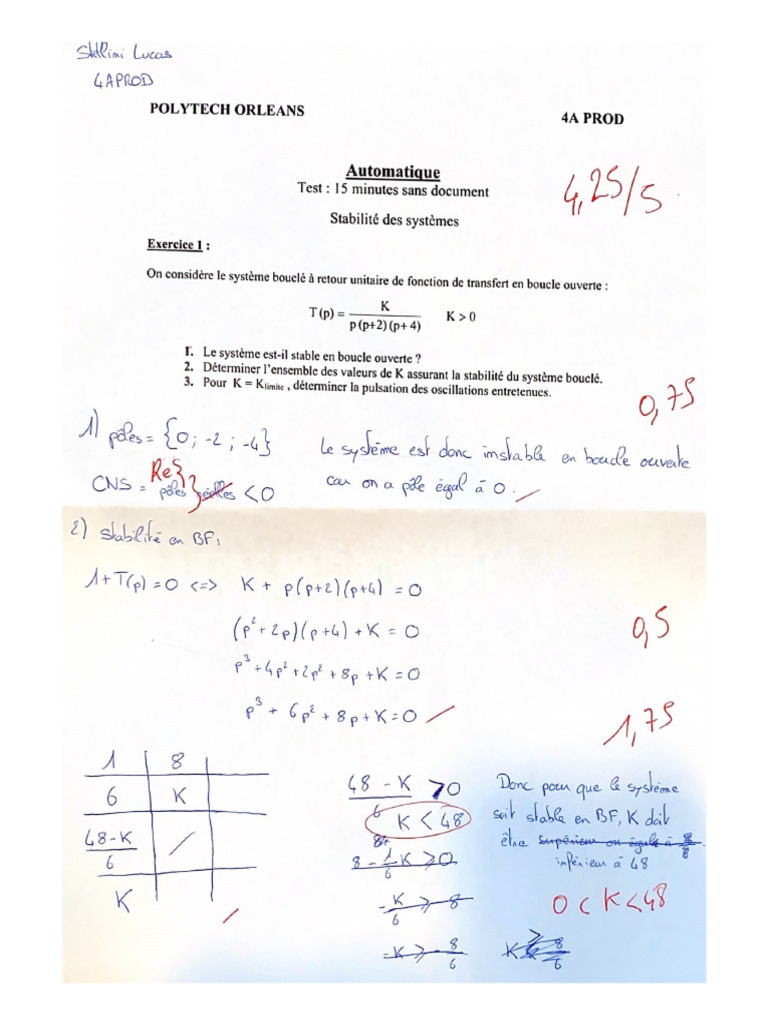 Stellini Lucas
4APROD
POLYTECH ORLEANS
4A PROD
Automatique
Test : 15 minutes sans document
4,25/5
Stabilité des systèmes
Exercice 1 :
On considère le système bouclé à retour unitaire de fonction de transfert en boucle ouverte :
T(p) = K / p(p+2)(p+4) K > 0
1. Le système est-il stable en boucle ouverte ?
2. Déterminer l'ensemble des valeurs de K assurant la stabilité du système bouclé.
3. Pour K = Klimite , déterminer la pulsation des oscillations entretenues.
0,75
1) pôles = {0 ; -2 ; -4} Le système est donc instable en boucle ouverte
CNS = Re{ pôles } réelles < 0 car on a pôle égal à 0.
2) Stabilité en BF :
1+T(p) = 0 <=> K + p(p+2)(p+4) = 0
(p²+2p)(p+4)+K = 0
0,5
p³+4p²+2p²+8p+K=0
p³+ 6p²+8p+K=0
1,75
1 8
6 K
48-K / 6
K
48-K / 6 > 0
K < 48
8 - 1/6 K ⩾ 0
-K/6 ⩾ -8
-K ⩾ -8/6
Donc pour que le système
soit stable en BF, K doit
être supérieur ou égale à 8/8
inférieur à 48
0 < K < 48